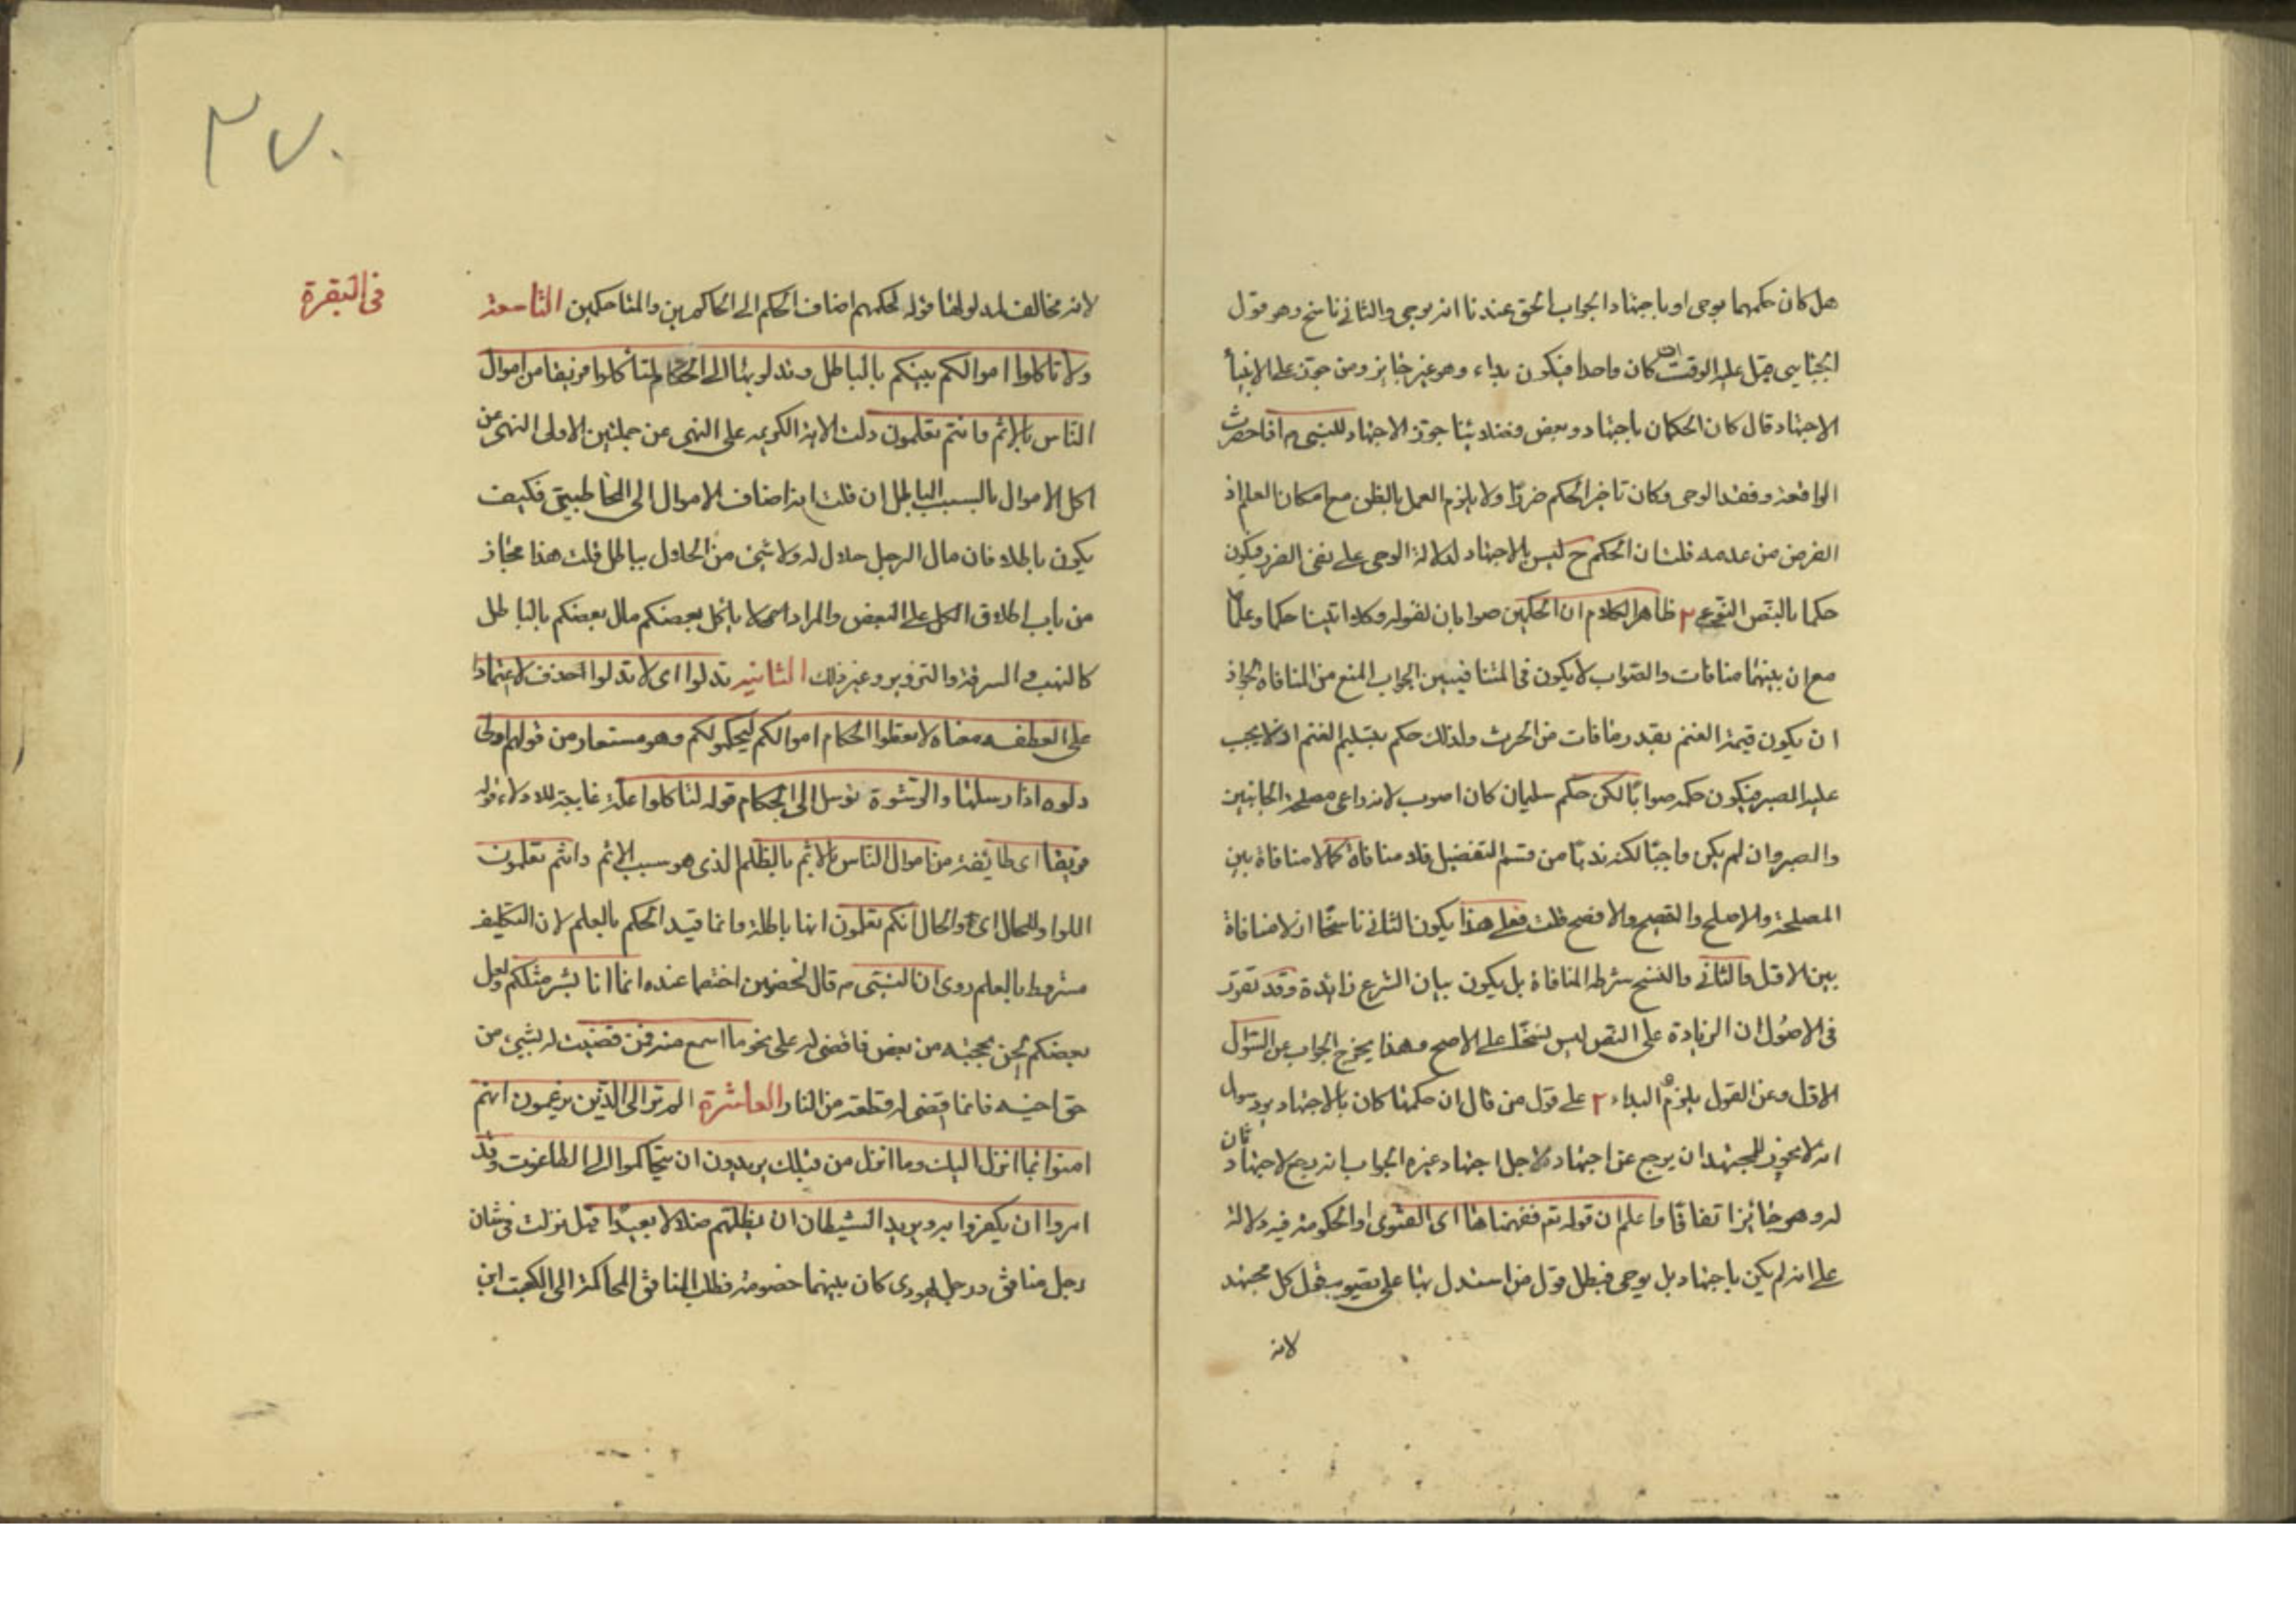 هل كان حكمهما بوحى او باجتهاد الجواب الحق عندنا انه بوحى والثانى ناسخ وهو قول
الجبائى قيل عليه الوقت ان كان واحدا فيكون بداء وهو غير جايز ومن جوز على الانبيآء
الاجتهاد قال كان الحكمان باجتهاد وبعض فضلائنا جوز الاجتهاد للنبى م اذا حضرت
الواقعة وفقد الوحى وكان تاخير الحكم ضررًا ولا يلزم العمل بالظن مع امكان العلم اذ
الفرض من عدمه قلت ان الحكم ح ليس بالاجتهاد لدلالة الوحى على نفى الضرر فيكون
حكما بالنص النوعى ٢ ظاهر الكلام ان الحكمين صوابان لقوله وكلا اتينا حكما وعلما
مع ان بينهما منافات والصواب لا يكون فى المتنافيين الجواب المنع من المنافاة لجواز
ان يكون قيمة الغنم بقدر ما فات من الحرث ولذلك حكم بتسليم الغنم اذ لا يجب
عليه الصبر فيكون حكمه صوابًا لكن حكم سليمان كان اصوب لانه راعى مصلحة الجانبين
والصبر وان لم يكن واجبًا لكنه ندبًا من قسم التفضيل فلا منافاة كما لا منافاة بين
المصلحة والاصلح والفصيح والافصح قلت فعلى هذا يكون الثانى ناسخًا اذ لا منافاة
بين الاول والثانى والنسخ شرطه المنافاة بل يكون بيان الشرع زائدة وقد تقرر
فى الاصول ان الزيادة على النص ليس نسخًا على الاصح وهذا يخرج الجواب عن السؤال
الاول وعن القول بلزوم البداء ٢ على قول من قال ان حكمهما كان بالاجتهاد يرد سؤال
انه لا يجوز للمجتهد ان يرجع عن اجتهاده لاجل اجتهاد غيره الجواب انه رجع لاجتهاد ثان
له وهو جائز اتفاقًا واعلم ان قوله تع ففهمناها اى الفتوى او الحكومة فيه دلالة
على انه لم يكن باجتهاد بل بوحى فبطل قول من استدل بها على تصويب قول كل مجتهد
لانه
٢٧٠
فى البقرة
لانه مخالف لمدلولها قوله لحكمهم اضاف الحكم الى الحاكمين والمتحاكمين التاسعة
ولا تاكلوا اموالكم بينكم بالباطل وتدلوا بها الى الحكام لتاكلوا فريقا من اموال
الناس بالاثم وانتم تعلمون دلت الاية الكريمه على النهى عن جملتين الاولى النهى عن
اكل الاموال بالسبب الباطل ان قلت انه اضاف الاموال الى المخاطبين فكيف
يكون باطلا فان مال الرجل حلال له ولا شئ من الحلال بباطل قلت هذا مجاز
من باب اطلاق الكل على البعض والمراد لا ياكل بعضكم مال بعضكم بالباطل
كالنهب والسرقة والتزوير وغير ذلك الثانيه تدلوا اى لا تدلوا احذف لا اعتمادا
على العطف معناه لا تعطوا الحكام اموالكم ليحكموا لكم وهو مستعار من قولهم ادلى
دلوه اذا ارسلها والرشوة توسل الى الحكام قوله لتاكلوا علة غايية للادلاء قوله
فريقا اى طائفة من اموال الناس بالاثم بالظلم الذى هو سبب الاثم وانتم تعلمون
الواو للحال اى والحال انكم تعلمون انها باطلة وانما قيد الحكم بالعلم لان التكليف
مشروط بالعلم روى ان النبى م قال لخصمين اختصما عنده انما انا بشر مثلكم ولعل
بعضكم الحن بحجته من بعض فاقضى له على نحو ما اسمع منه فمن قضيت له بشئ من
حق اخيه فانما اقضى له قطعة من النار العاشرة الم تر الى الذين يزعمون انهم
امنوا بما انزل اليك وما انزل من قبلك يريدون ان يتحاكموا الى الطاغوت وقد
امروا ان يكفروا به ويريد الشيطان ان يضلهم ضلالا بعيدا قيل نزلت فى شان
رجل منافق ورجل يهودى كان بينهما خصومة فطلب المنافق المحاكمة الى الكعب ابن